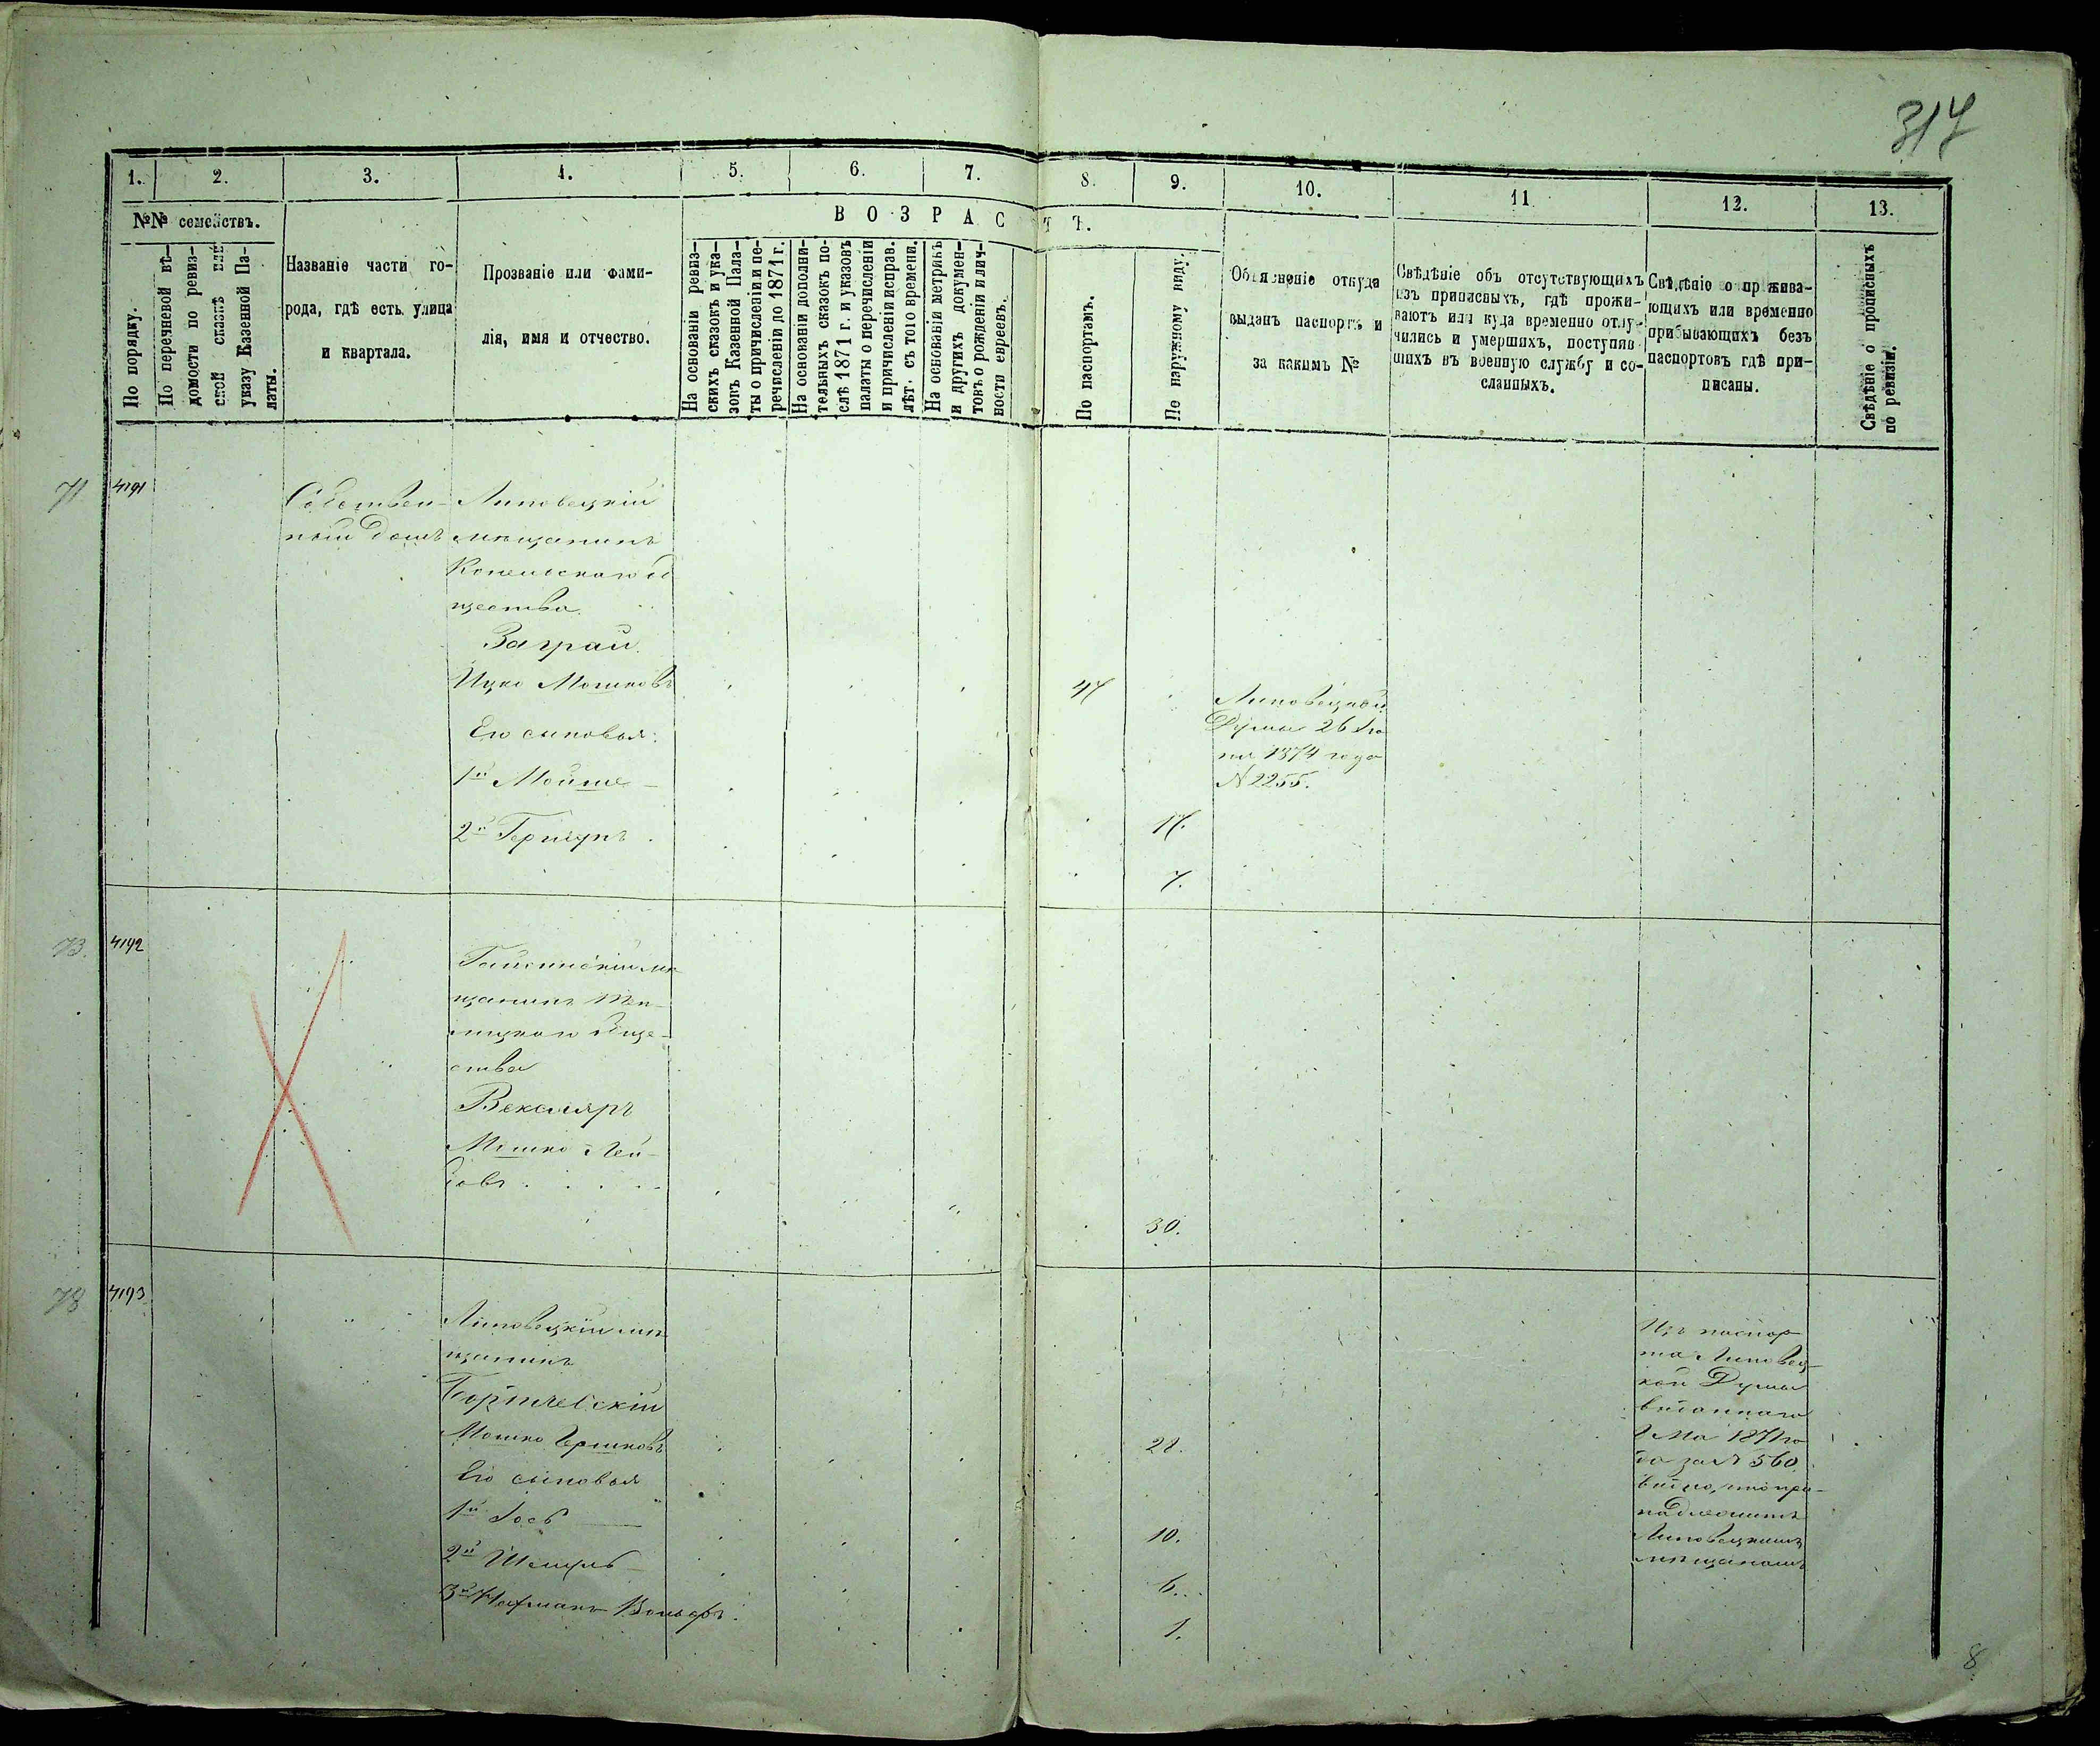 317
1.
2.
3.
4.
5.
6.
7.
8.
9.
10.
11
12.
13.
№№ семействъ.
По порядку.
По перечневой вѣ-
домости по ревиз-
ской сказкѣ или
указу Казенной Па-
латы.
Названіе части го-
рода, гдѣ есть улица
и квартала.
Прозваніе или фами-
лія, имя и отчество.
ВОЗРАСТЪ.
На основаніи ревиз-
скихъ сказокъ и ука-
зовъ Казенной Пала-
ты о причисленіи и пе-
речисленіи до 1871 г.
На основаніи дополни-
тельныхъ сказокъ по-
слѣ 1871 г. и указовъ
палаты о перечисленіи
и причисленіи исправ.
лѣт. съ того времени.
На основаніи метрикъ
и другихъ докумен-
товъ о рожденіи и лич-
ности евреевъ.
По паспортамъ.
По наружному виду.
Объясненіе откуда
выданъ паспортъ и
за какимъ №
Свѣдѣніе объ отсутствующихъ
изъ приписныхъ, гдѣ прожи-
ваютъ или куда временно отлу-
чились и умершихъ, поступив
шихъ въ военную службу и со-
сланныхъ.
Свѣдѣніе о прожива-
ющихъ или временно
прибывающихъ безъ
паспортовъ гдѣ при-
писаны.
Свѣдѣніе о прописныхъ
по ревизіи.
71
4191
Собствен-
ный домъ
Липовецкій
мѣщанинъ
Конельскаго об
щества
Заграй
Ицко Мошковъ
47
Липовецкой
Думы 26 Ію
ня 1874 года
№ 2255.
Его сыновья:
1й Мойше
17.
2й Гершунъ
7.
73.
4192
Гайсинскій мѣ
щанинъ Теп-
лицкаго обще-
ства
Векслярь
Мошко Лей-
бовъ
30.
78
4193
Липовецкій мѣ
щанинъ
Мошко Гершковъ
28.
Его сыновья
1й Іось
10.
2й
6.
3й Нахманъ Вольфъ.
1.
Изъ паспор
та Липовец-
кой Думы
выданнаго
1871 го
да за № 560
видно, что при-
надлежитъ
Липовецкимъ
мѣщанамъ
8